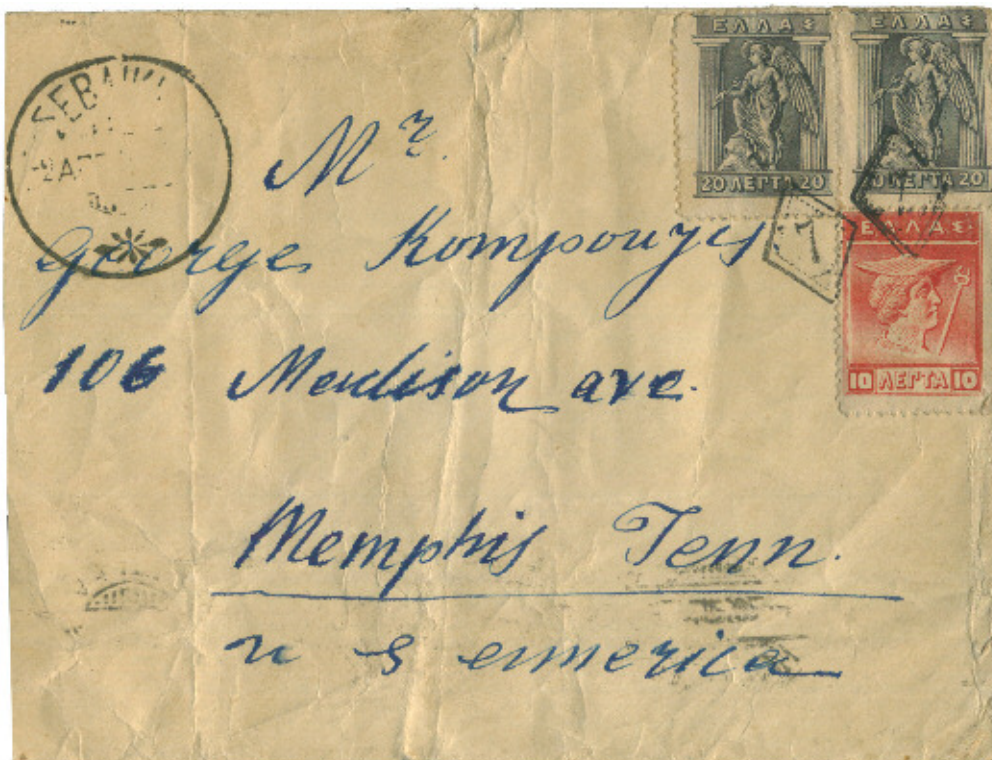 ΕΛΛΑΣ ΕΛΛΑΣ
20 ΛΕΠΤΑ 20
ΛΕΠΤΑ 20
ΕΛΛΑΣ
10 ΛΕΠΤΑ 10
Mr.
George Kompouyis
106 Madison ave.
Memphis Tenn.
u s america